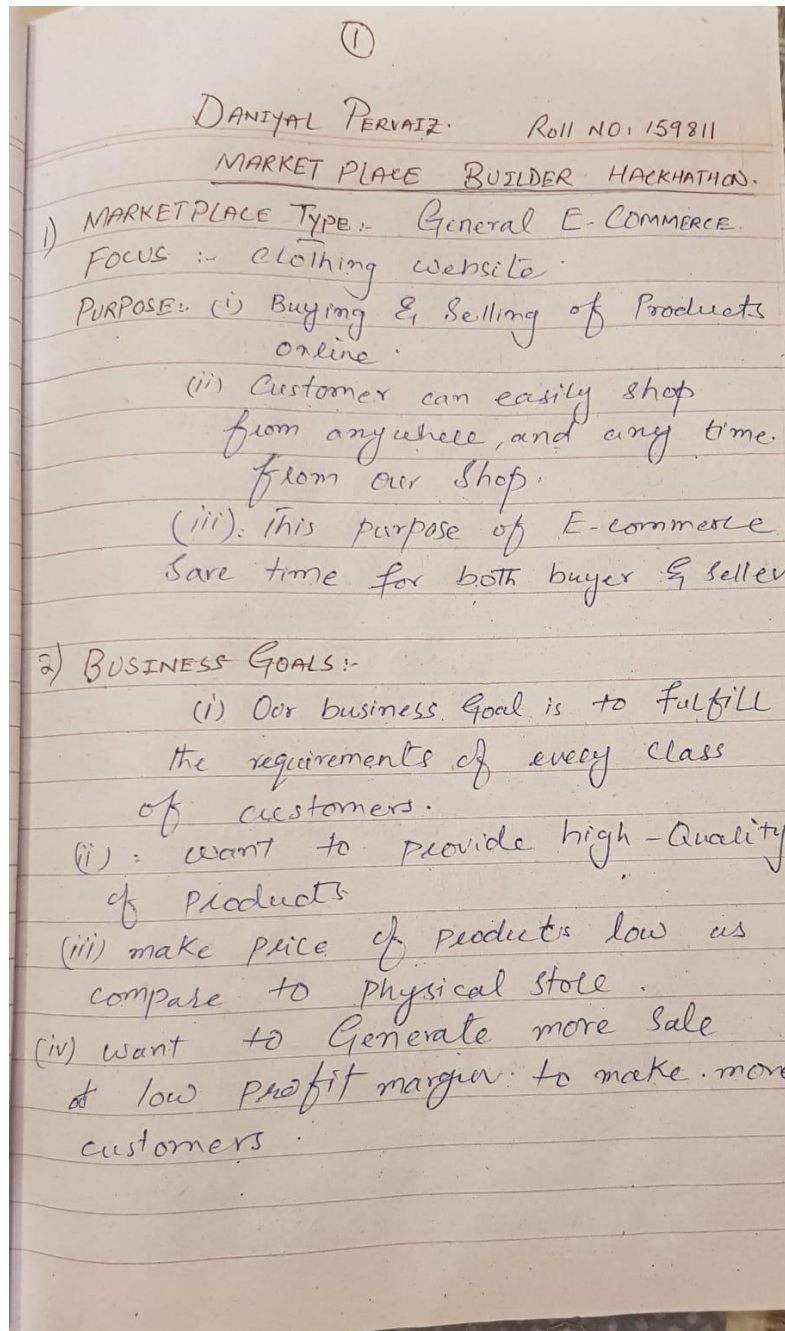 1
DANIYAL PERVAIZ. Roll NO: 159811
MARKET PLACE BUILDER HACKHATHON.
1) MARKETPLACE TYPE:- General E-COMMERCE.
FOCUS :- Clothing website.
PURPOSE:- (i) Buying & Selling of Products
online.
(ii) Customer can easily shop
from anywhere, and any time.
from our Shop.
(iii). This purpose of E-commerce
Save time for both buyer & Seller
2) BUSINESS GOALS:-
(i) Our business Goal is to fulfill
the requirements of every class
of customers.
(ii): want to provide high-Quality
of Products
(iii) make price of products low as
compare to physical store.
(iv) want to Generate more Sale
at low profit margin. to make. more
customers.